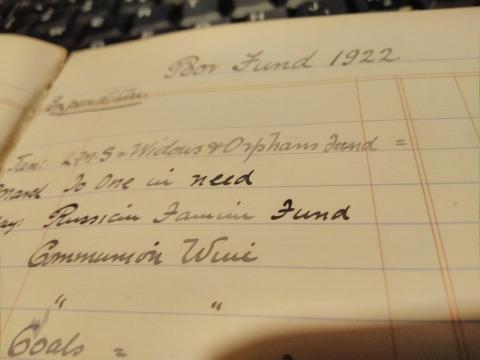 Poor Fund 1922.
Expenditure.
Jan: L.M.S = Widows & Orphans Fund =
To one in need
Russian Famine Fund
Communion Wine
" "
Coals =